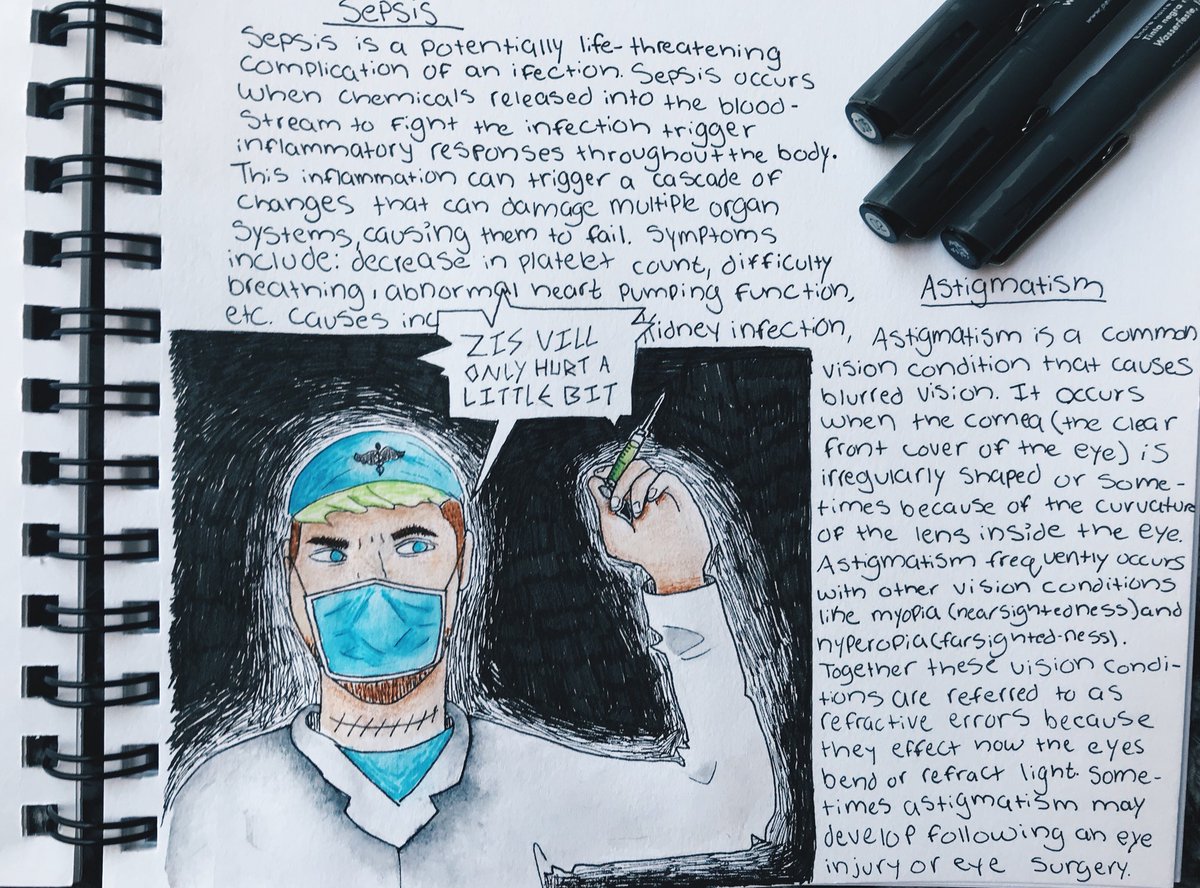 Sepsis
Sepsis is a potentially life-threatening
complication of an ifection. Sepsis occurs
when chemicals released into the blood-
stream to fight the infection trigger
inflammatory responses throughout the body.
This inflammation can trigger a cascade of
changes that can damage multiple organ
systems, causing them to fail. Symptoms
include: decrease in platelet count, difficulty
breathing, abnormal heart pumping function,
etc. Causes inc
kidney infection,
ZIS VILL
ONLY HURT A
LITTLE BIT
Astigmatism
Astigmatism is a common
vision condition that causes
blurred vision. It occurs
when the cornea (the clear
front cover of the eye) is
irregularly shaped or some-
times because of the curvature
of the lens inside the eye.
Astigmatism frequently occurs
with other vision conditions
like myopia (nearsightedness) and
hyperopia (farsighted-ness).
Together these vision condi-
tions are referred to as
refractive errors because
they effect how the eyes
bend or refract light. Some-
times astigmatism may
develop following an eye
injury or eye surgery.
Tinta negra
Wasserfeste